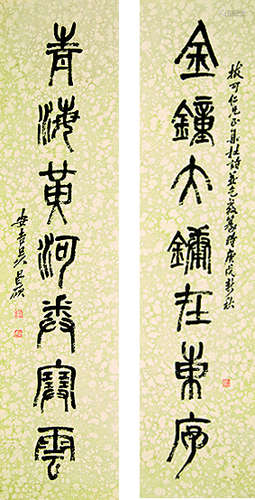 金鐘大鏞在東序
拔可仁兄正集杜詩 庚戌新秋
青海黃河卷塞雲
安吉吳昌碩